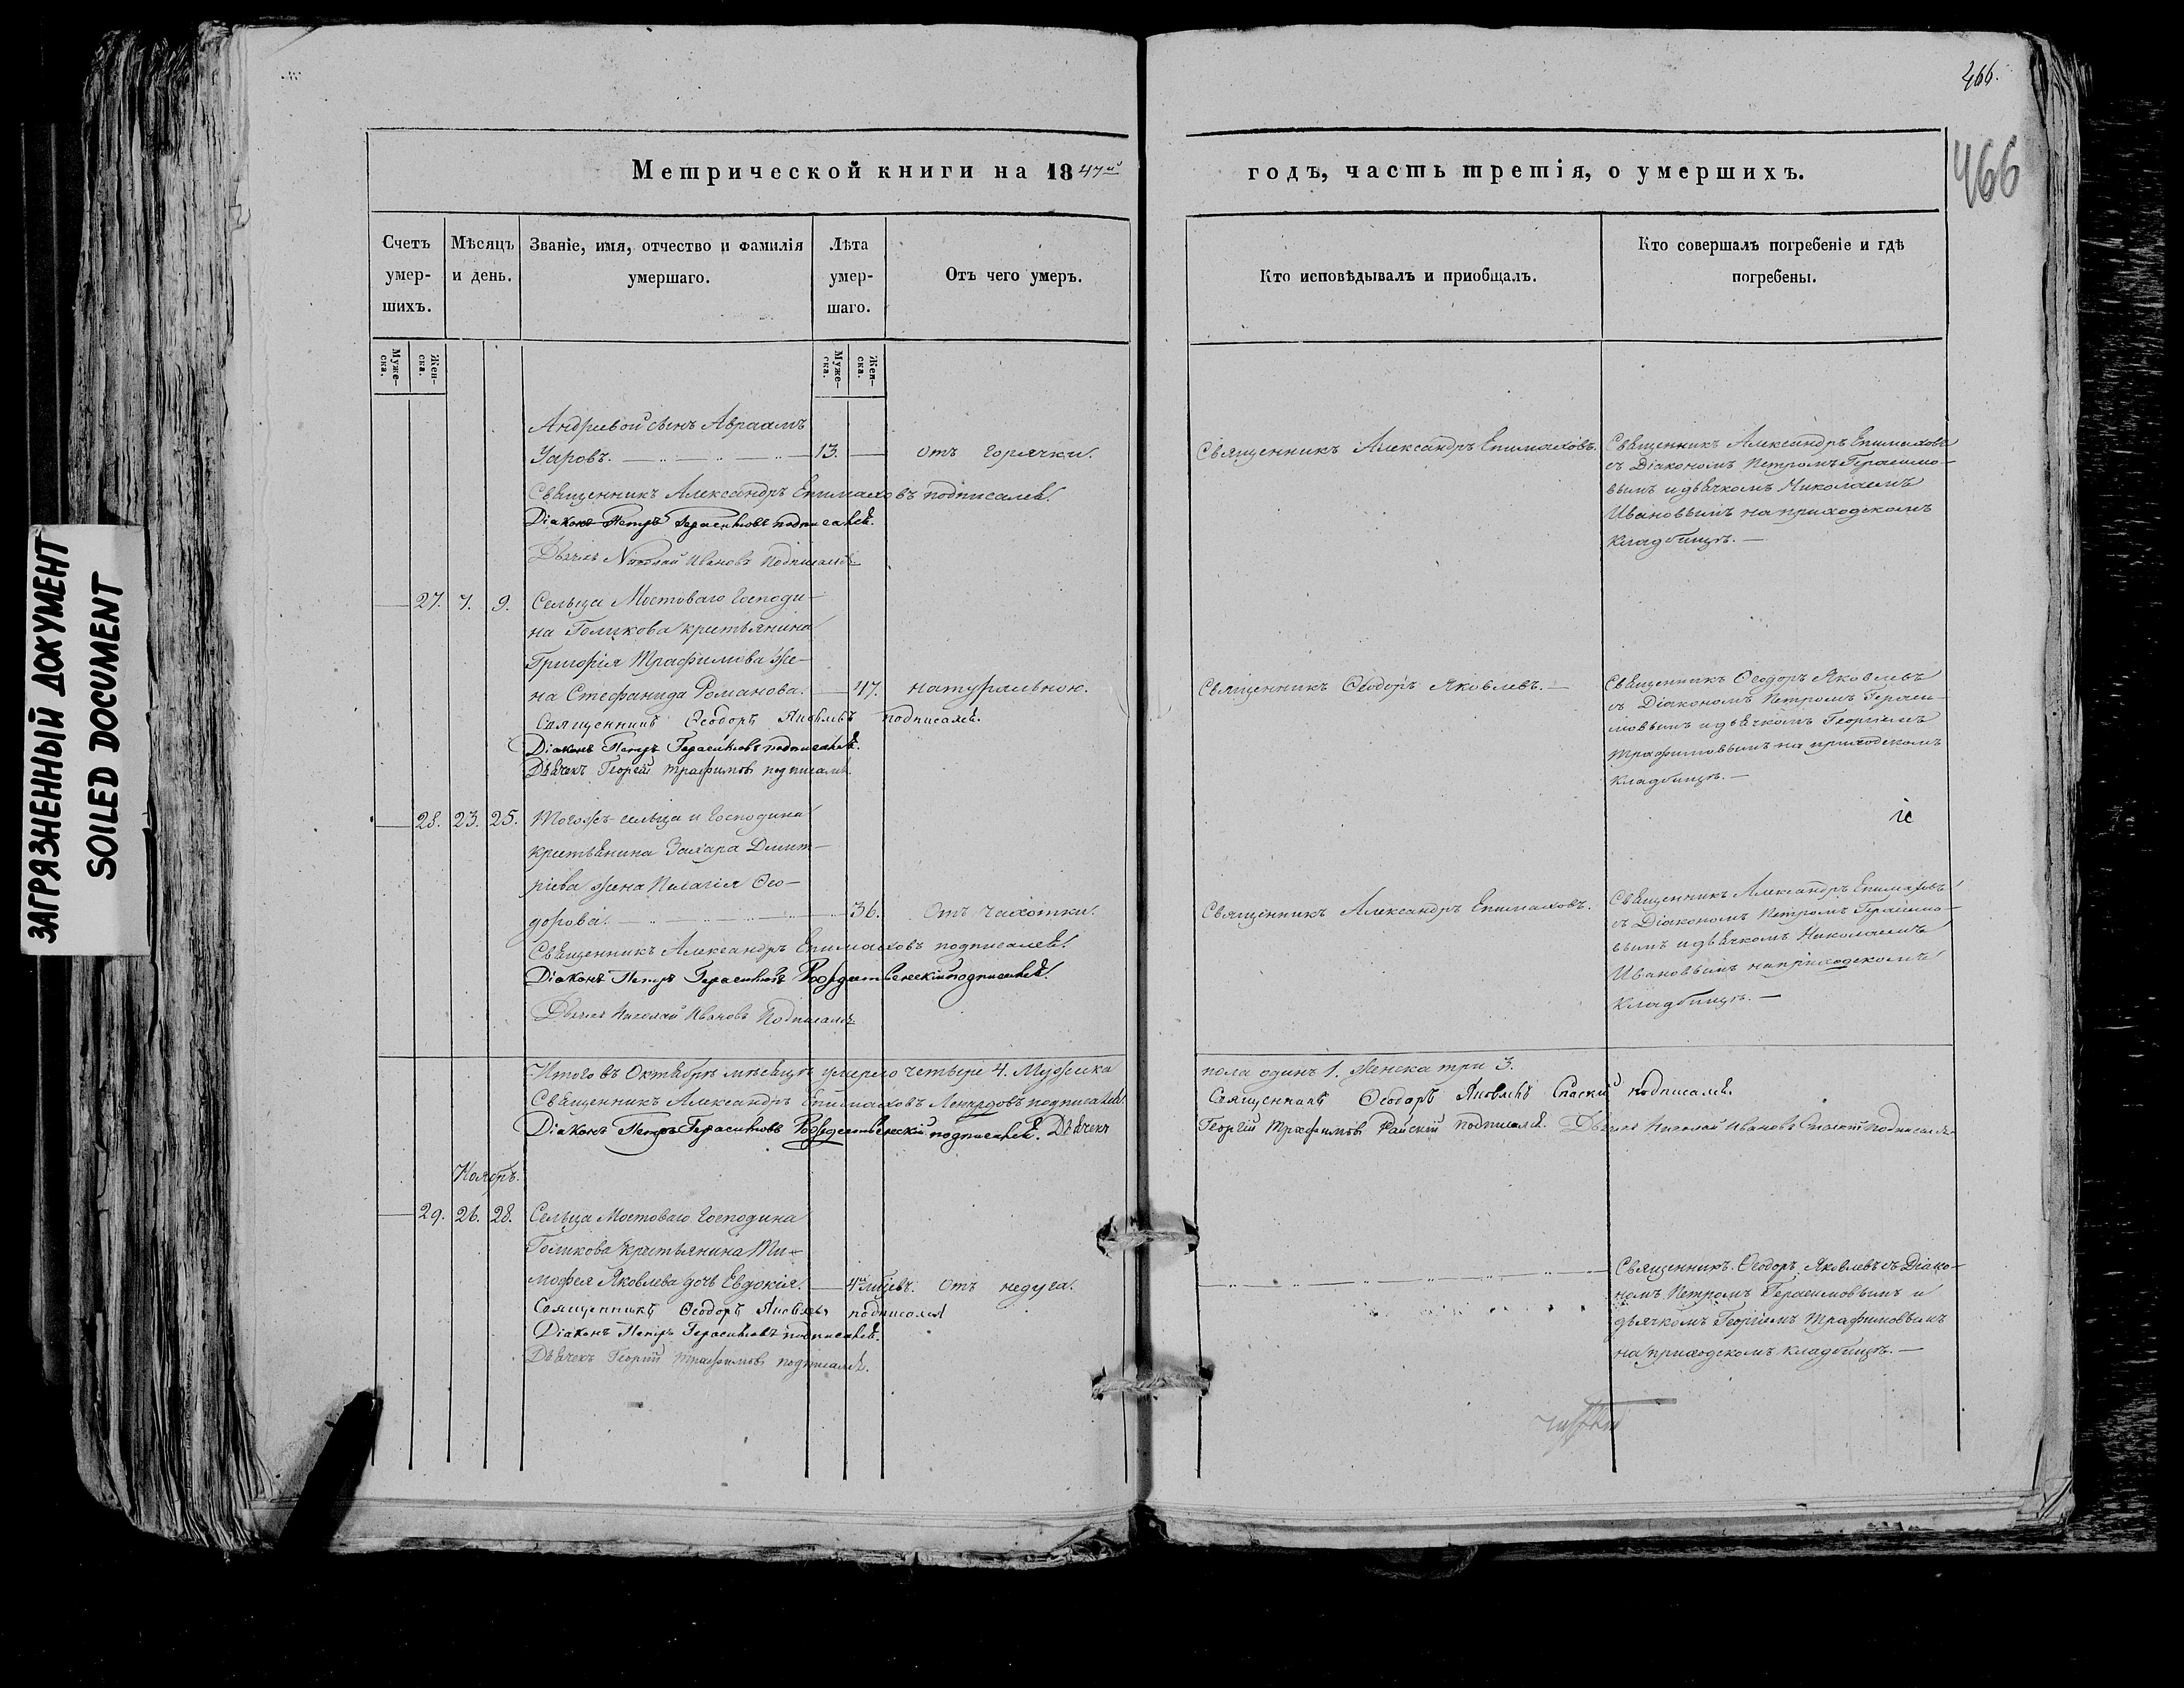 466.
466
ЗАГРЯЗНЕННЫЙ ДОКУМЕНТ
SOILED DOCUMENT
Метрической книги на 1847й
годъ, часть третія, о умершихъ.
Счетъ умер-
шихъ.
Мѣсяцъ
и день.
Званіе, имя, отчество и фамилія
умершаго.
Лѣта
умер-
шаго.
Отъ чего умеръ.
Кто исповѣдывалъ и приобщалъ.
Кто совершалъ погребеніе и гдѣ
погребены.
Муже-
ска.
Жен-
ска.
Муже-
ска.
Жен-
ска.
Андреевой сынъ Авраамъ
Уаровъ. 13. отъ горячки.
Священникъ Александръ Епимаховъ подписалсѧ
Діаконъ Петръ Герасимовъ подписалсѧ.
Дьячекъ Николай Ивановъ Подписался
Священникъ Александръ Епимаховъ.
Священникъ Александръ Епимаховъ
съ Діакономъ Петромъ Герасимо-
вымъ и дьѧчкомъ Николаемъ
Ивановымъ на приходскомъ
кладбищѣ. —
27. 7. 9. Сельца Мостоваго Господи-
на Голикова крестьянина
Григорія Трафимова же-
на Стефанида Романова. 47. натуральною.
Священникъ Ѳеодоръ Яковлевъ подписалсѧ.
Діаконъ Петръ Герасимовъ подписалсѧ.
Дьѧчекъ Георгій Трафимовъ подписалсѧ.
Священникъ Ѳеодоръ Яковлевъ. —
Священникъ Ѳеодоръ Яковлевъ
съ Діакономъ Петромъ Гераси-
мовымъ и дьѧчкомъ Георгіемъ
Трафимовымъ на приходскомъ
кладбищѣ. —
28. 23. 25. Тогожъ сельца и Господина
крестьѧнина Захара Дмит-
ріева жена Пелагія Ѳео-
дорова. 36. Отъ чахотки.
Свѧщенникъ Александръ Епимаховъ подписалсѧ
Діаконъ Петръ Герасимовъ Рождественскій подписалсѧ
Дьячекъ Николай Ивановъ Подписался
Священникъ Александръ Епимаховъ.
Свѧщенникъ Александръ Епимаховъ
съ Діакономъ Петромъ Герасимо-
вымъ и дьѧчкомъ Николаемъ
Ивановымъ на приходскомъ
кладбищѣ. —
Итого въ Октѧбрѣ мѣсѧцѣ умерло четыре 4. Мужеска
пола одинъ 1. Женска три 3.
Свѧщенникъ Александръ Епимаховъ подписалсѧ
Священникъ Ѳеодоръ Яковлевъ Спаскій подписалсѧ.
Діаконъ Петръ Герасимовъ Рождественскій подписалсѧ. Дьѧчекъ
Георгій Трафимовъ Райскій подписалсѧ. Дьячекъ Николай Ивановъ Подписался
Ноябрь.
29. 26. 28. Сельца Мостоваго Господина
Голикова крестьянина Ти-
мофея Яковлева дочь Евдокія. 4хъ мѣсяцевъ. Отъ недуга.
Священникъ Ѳеодоръ Яковлевъ подписался
Діаконъ Петръ Герасимовъ подписалсѧ.
Дьѧчекъ Георгій Трафимовъ подписалсѧ.
Священникъ Ѳеодоръ Яковлевъ съ Діако-
номъ Петромъ Герасимовымъ и
дьячкомъ Георгіемъ Трафимовымъ
на приходскомъ кладбищѣ. —